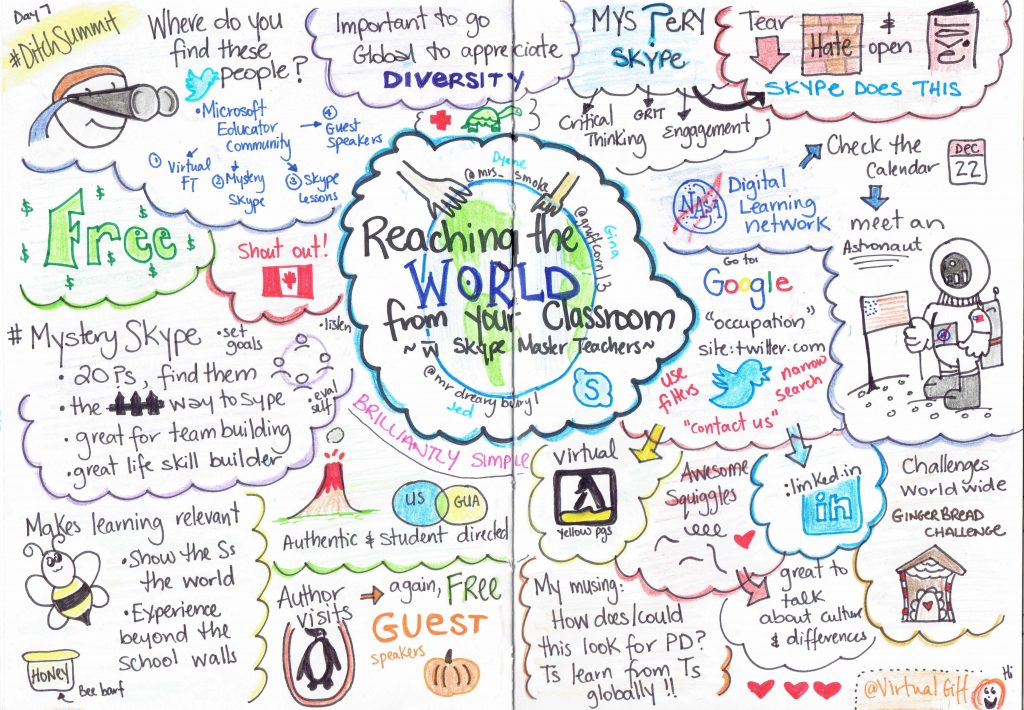 Day 7
#DitchSummit
Where do you
find these
people?
• Microsoft
Educator
Community
① Virtual
FT
② Mystery
Skype
③ Skype
Lessons
④
Guest
Speakers
Important to go
Global to appreciate
DIVERSITY
MYS?ERY
SKYPE
Critical
Thinking
GRIT
Engagement
Tear
Hate
&
open
SKYPE DOES THIS
Free
$ $ $ $ $ $ $ $
Shout out!
Dyane
@mrs_smoke
Gina
Reaching the
WORLD
from your Classroom
~ w Skype Master Teachers ~
Jed
S
BRILLIANTLY SIMPLE
NASA
Digital
Learning
network
Check the
Calendar
DEC
22
meet an
Astronaut
Go to:
Google
"occupation"
site:twitter.com
use
filters
narrow
search
"contact us"
# Mystery Skype
• 20 Ps, find them
• the way to sype
• great for team building
• great life skill builder
• set
goals
• listen
• eval
self
Makes learning relevant
• Show the Ss
the world
• Experience
beyond the
school walls
HONEY
Bee barf
US
GUA
Authentic & student directed
Author
visits
again, FREE
GUEST
speakers
virtual
yellow pgs
Awesome
Squiggles
:linked.in
in
Challenges
world wide
GINGERBREAD
CHALLENGE
My musing:
How does/could
this look for PD?
Ts learn from Ts
globally!!
great to
talk
about culture
& differences
@VirtualGiff
Hi